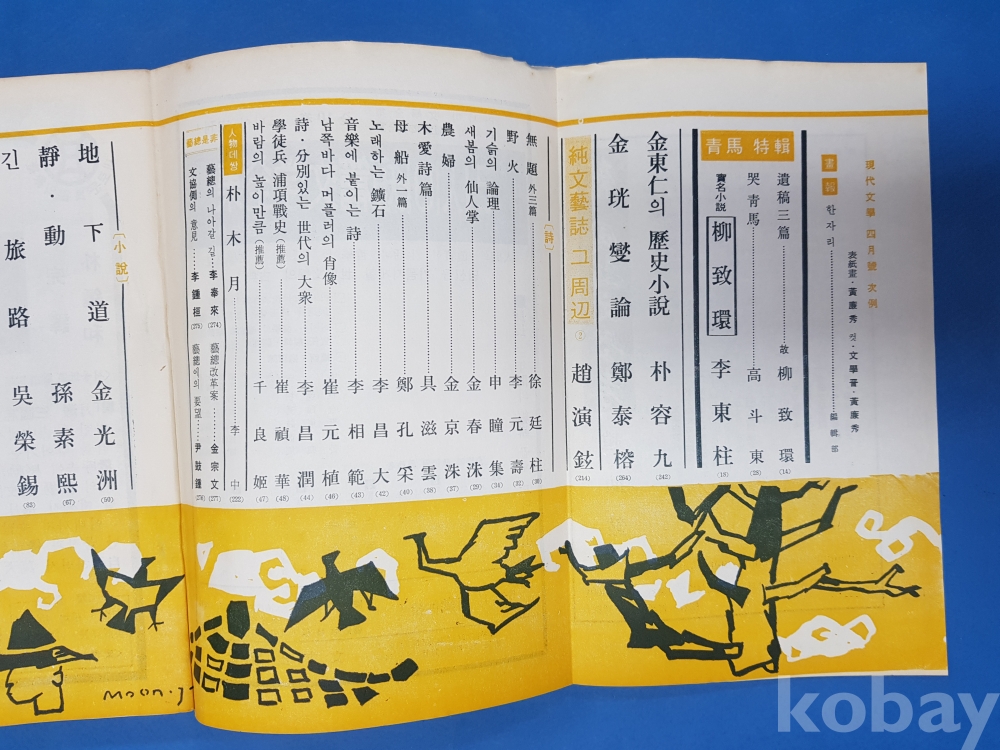 現代文學 四月號 次例
表紙畵·黃廉秀 컷·文學晋·黃廉秀
畵報 한자리 編輯部
靑馬 特輯
遺稿三篇 故 柳致環 (14)
哭靑馬 高斗東 (28)
實名小說 柳致環 李東柱 (18)
金東仁의 歷史小說 朴容九 (242)
金珖燮論 鄭泰榕 (264)
純文藝誌 그 周辺 ② 趙演鉉 (214)
〔詩〕
無題 外三篇 徐廷柱 (30)
野火 李元壽 (32)
기술의 論理 申瞳集 (34)
새봄의 仙人掌 金春洙 (29)
農婦 金京洙 (37)
木愛詩篇 具滋雲 (38)
母船 外一篇 鄭孔采 (40)
노래하는 鑛石 李昌大 (42)
音樂에 붙이는 詩 李相範 (43)
남쪽바다 머플러의 肖像 崔元植 (46)
詩·分別있는 世代의 大衆 李昌潤 (44)
學徒兵 浦項戰史 (推薦) 崔禎華 (48)
바람의 높이만큼 (推薦) 千良姬 (47)
人物데쌍 朴木月 李中 (222)
藝總是非
藝總의 나아갈 길 李奉來 (274) 藝總改革案 金宗文 (277)
文協側의 意見 李鍾桓 (275) 藝總에의 要望 尹鼓鍾 (276)
〔小說〕
地下道 金光洲 (50)
靜·動 孫素熙 (67)
긴 旅路 吳榮錫 (83)
MOON.J
kobay